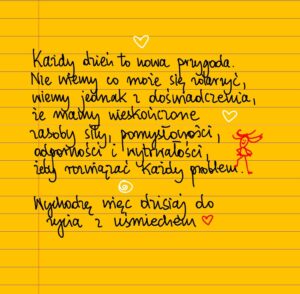 Każdy dzień to nowa przygoda.
Nie wiemy co może się zdarzyć,
wiemy jednak z doświadczenia,
że mamy nieskończone
zasoby siły, pomysłowości,
odporności i wytrwałości,
żeby rozwiązać każdy problem.
Wychodzę więc dzisiaj do
życia z uśmiechem